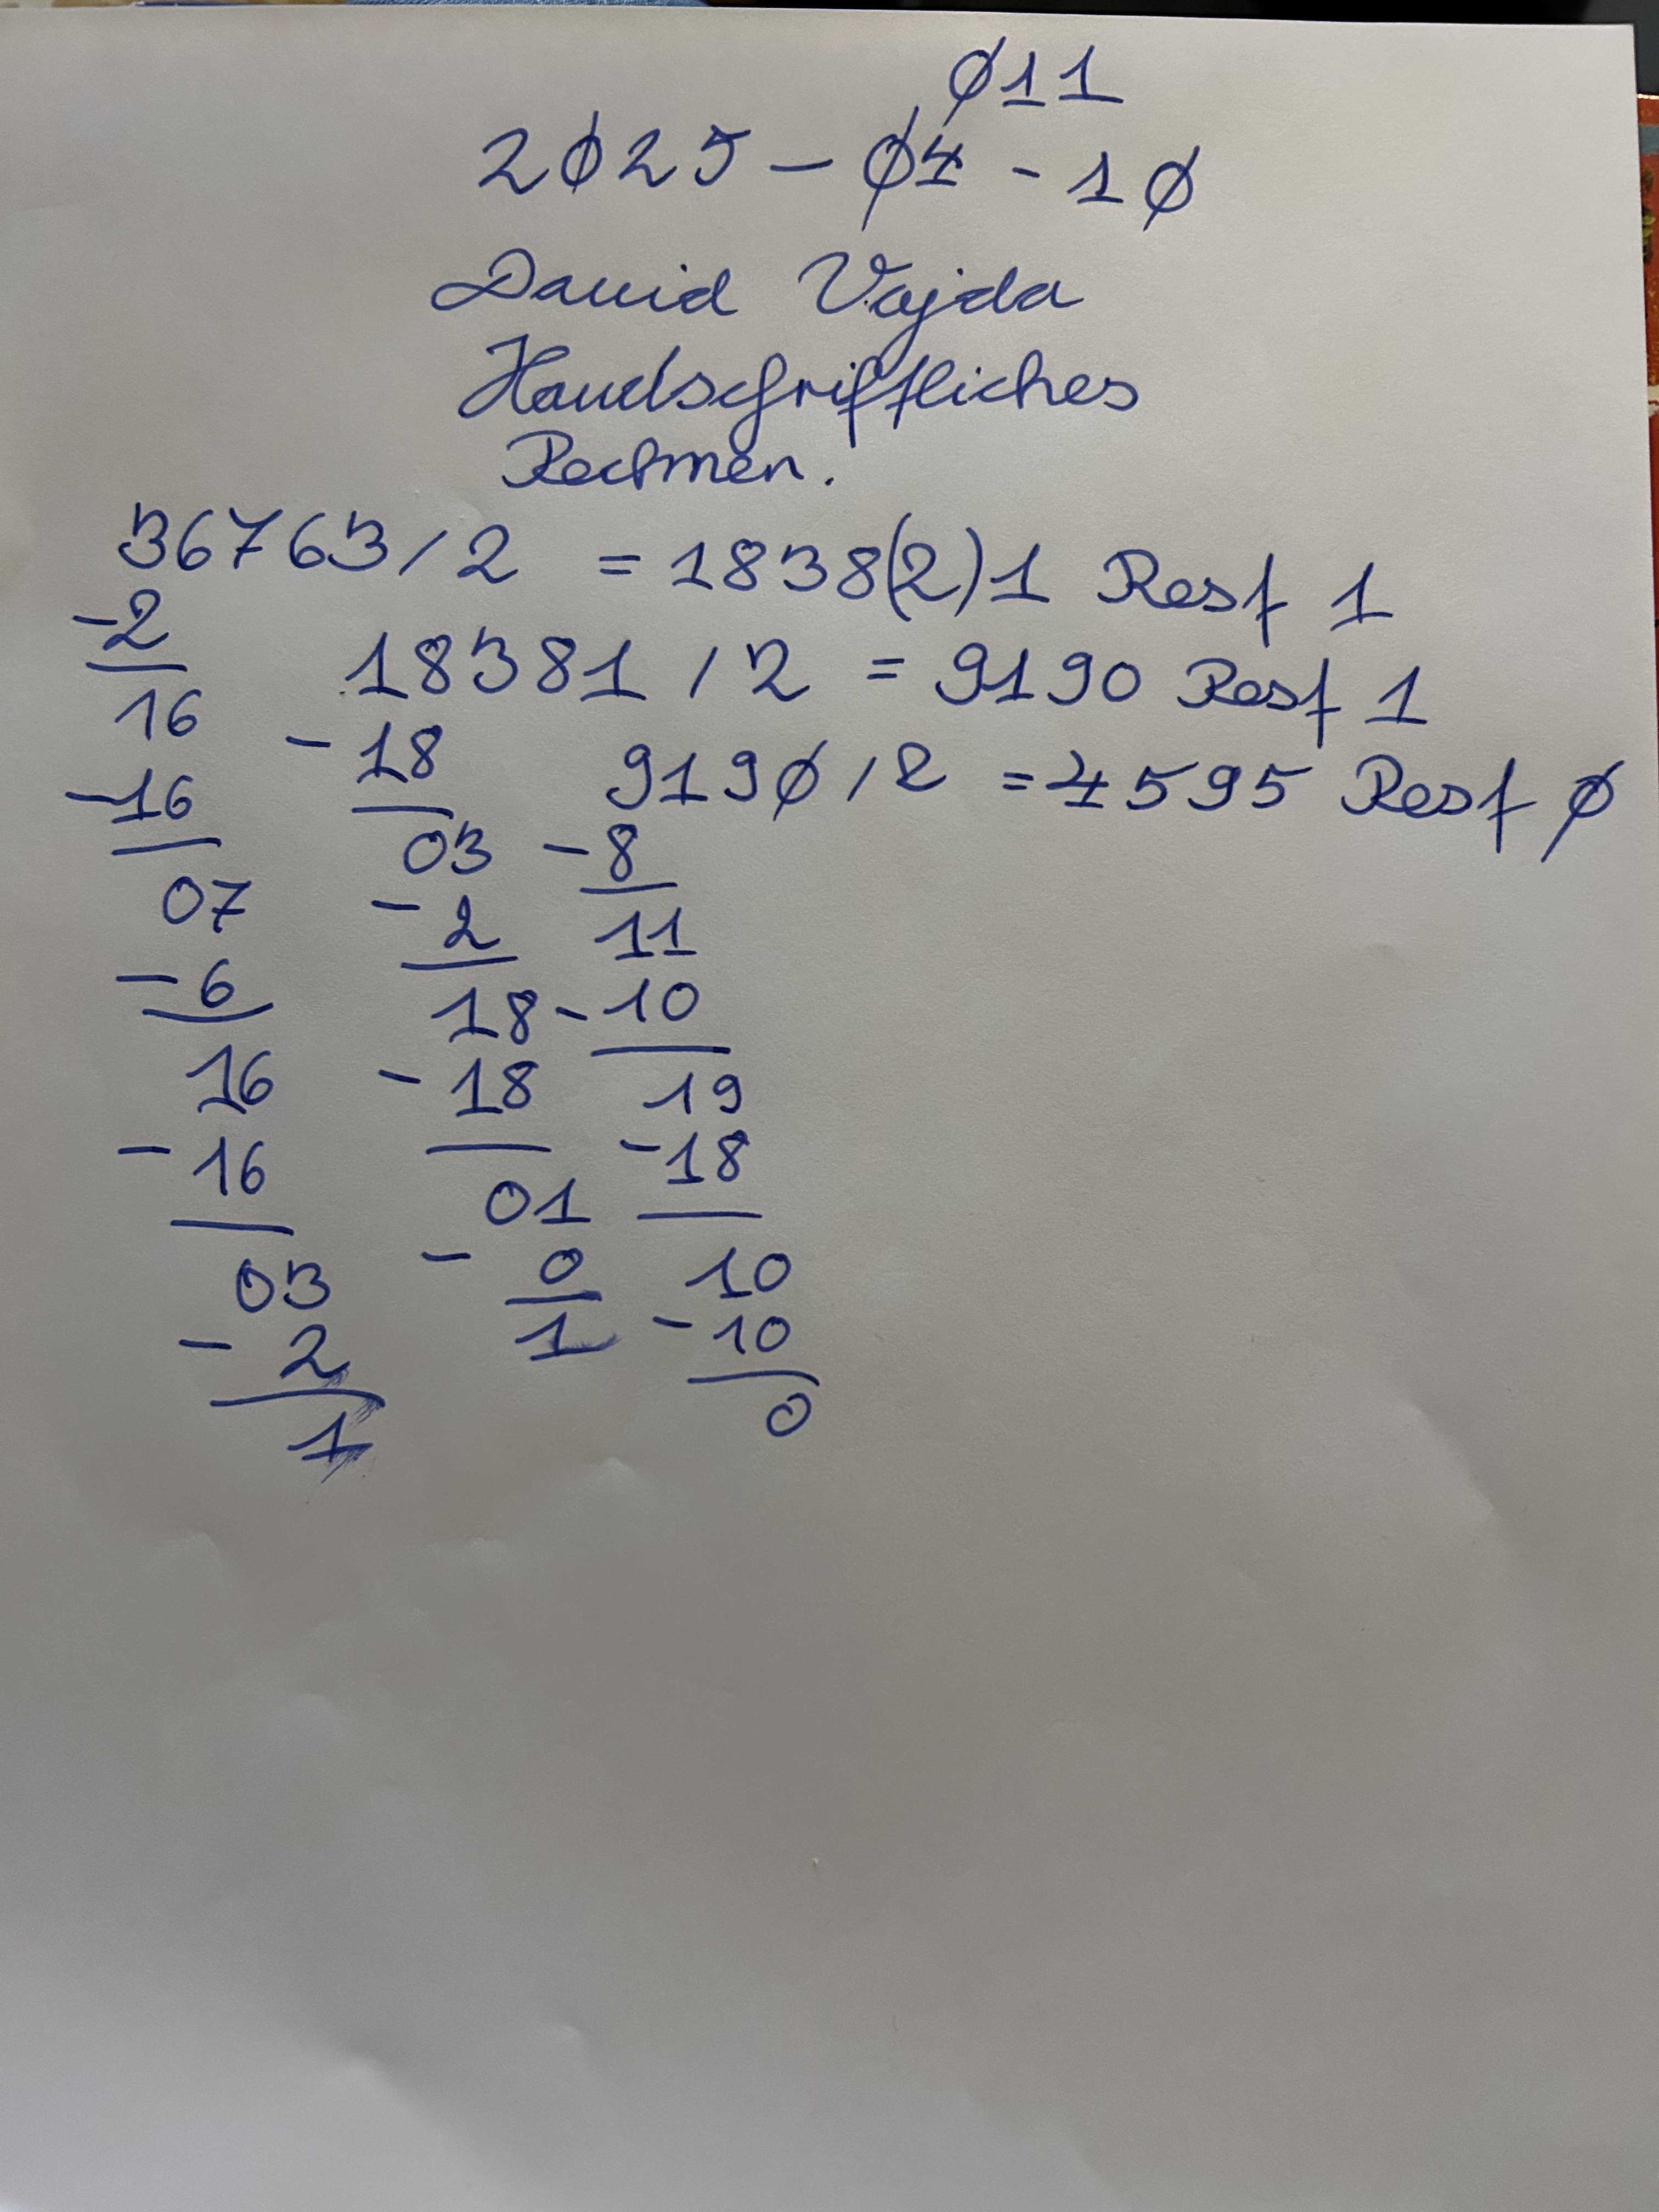 011
2025 - 04 - 10
David Vajda
Handschriftliches
Rechnen.
36763 / 2 = 1838(2)1 Rest 1
-2
18381 / 2 = 9190 Rest 1
16
-18
9190 / 2 = 4595 Rest 0
-16
03
-8
07
-2
11
-6
18
-10
16
-18
19
-16
01
-18
03
-0
10
-2
1
-10
1
0